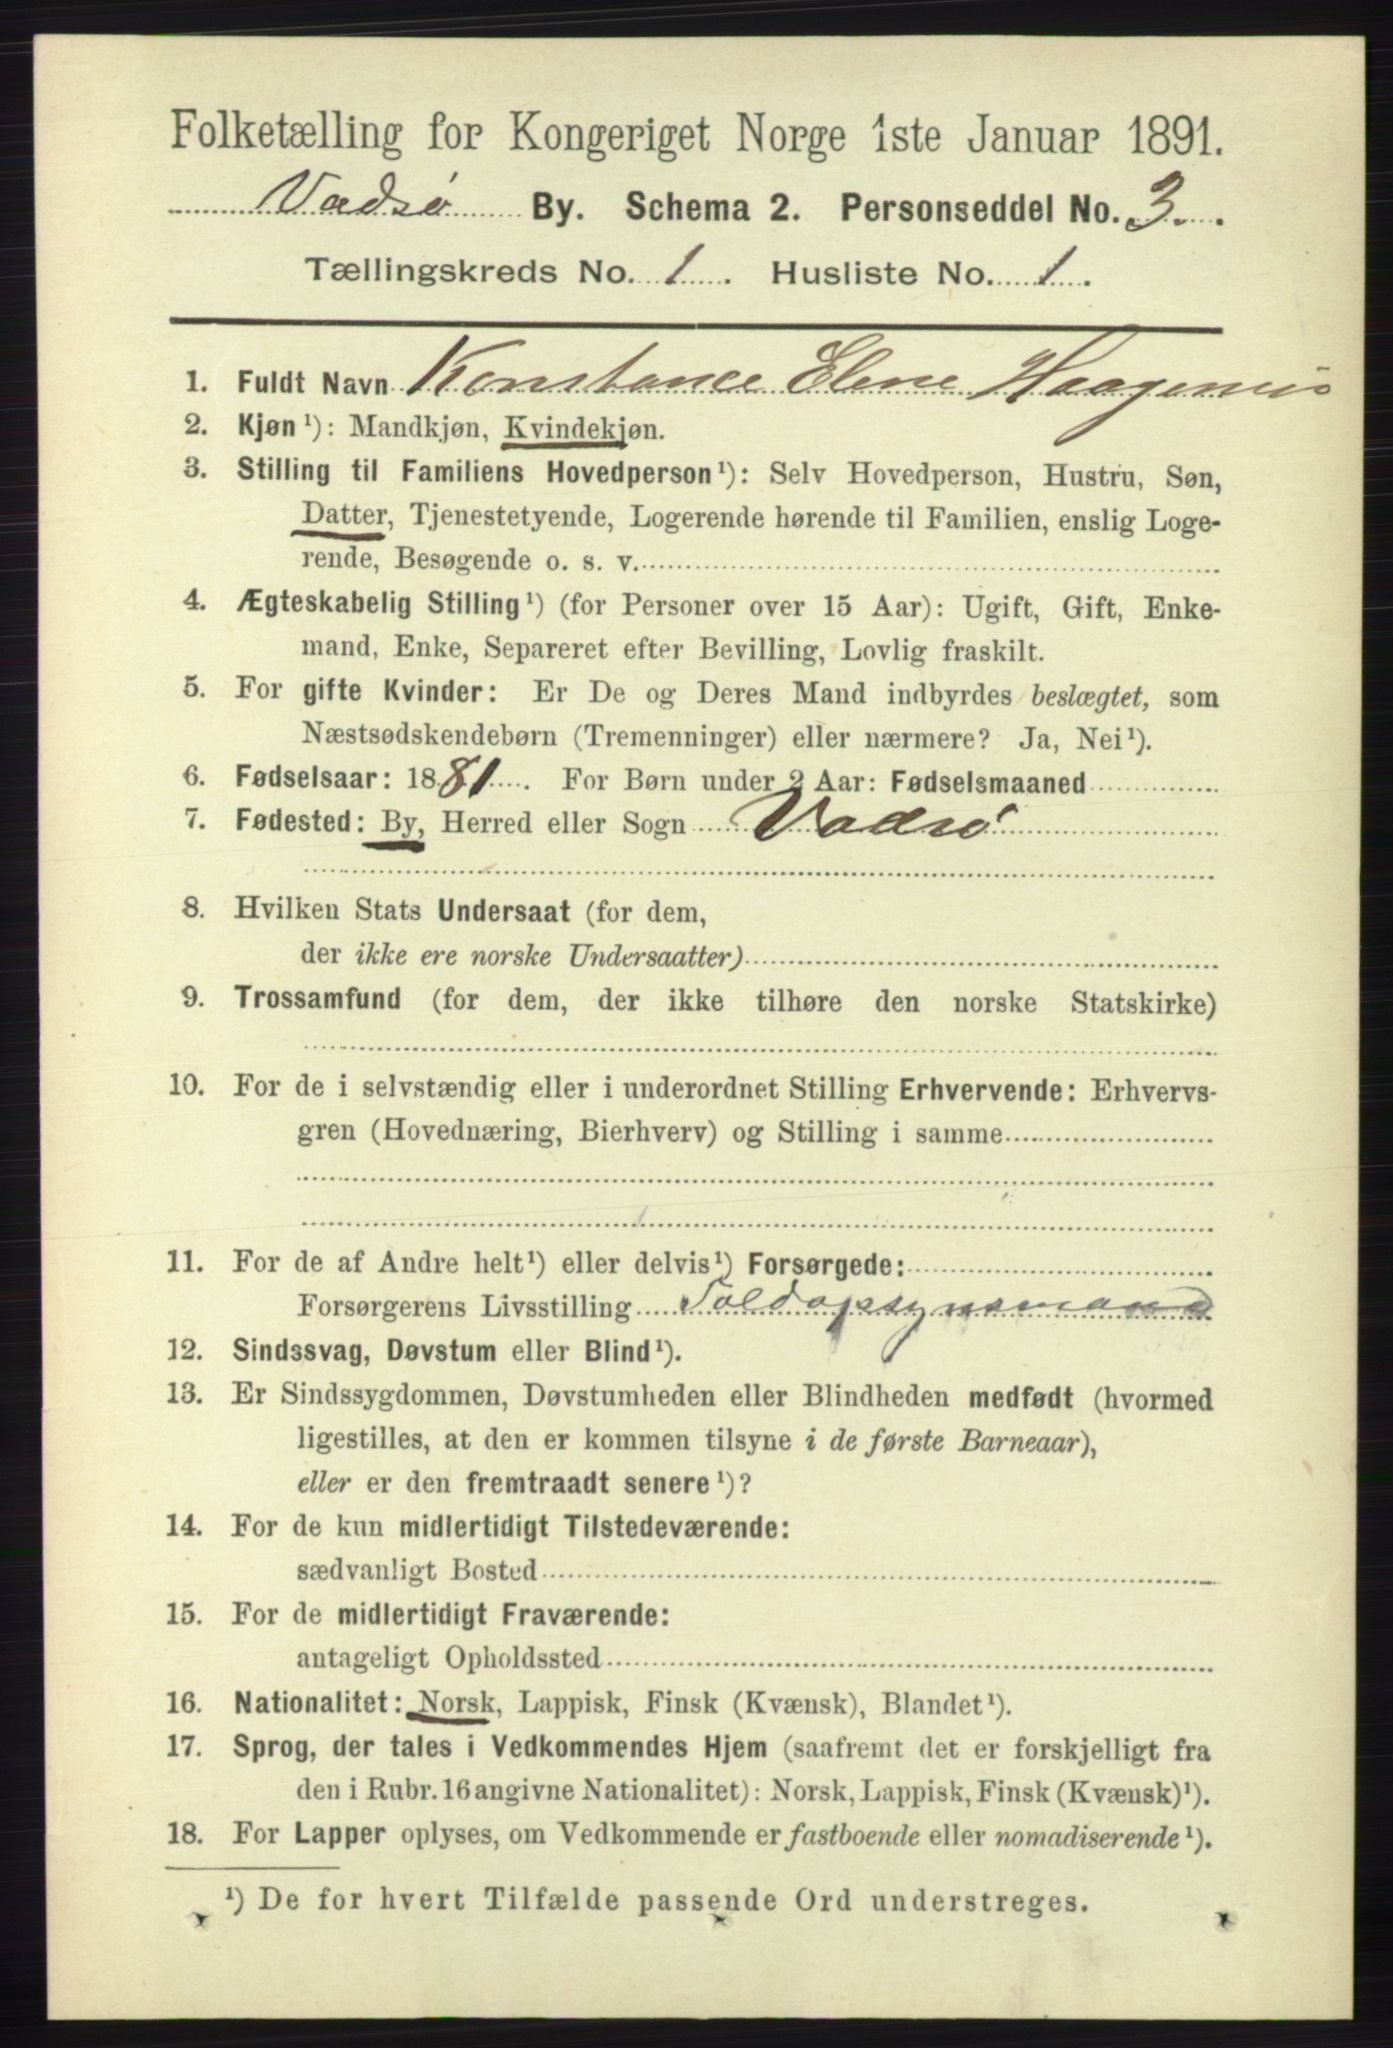 Folketælling for Kongeriget Norge 1ste Januar 1891.
Vadsø By. Schema 2. Personseddel No. 3.
Tællingskreds No. 1. Husliste No. 1.
1. Fuldt Navn Konstance Elene
2. Kjøn¹): Mandkjøn, Kvindekjøn.
3. Stilling til Familiens Hovedperson¹): Selv Hovedperson, Hustru, Søn,
Datter, Tjenestetyende, Logerende hørende til Familien, enslig Loge-
rende, Besøgende o. s. v.
4. Ægteskabelig Stilling¹) (for Personer over 15 Aar): Ugift, Gift, Enke-
mand, Enke, Separeret efter Bevilling, Lovlig fraskilt.
5. For gifte Kvinder: Er De og Deres Mand indbyrdes beslægtet, som
Næstsødskendebørn (Tremenninger) eller nærmere? Ja, Nei¹).
6. Fødselsaar: 1881. For Børn under 2 Aar: Fødselsmaaned
7. Fødested: By, Herred eller Sogn Vadsø
8. Hvilken Stats Undersaat (for dem,
der ikke ere norske Undersaatter)
9. Trossamfund (for dem, der ikke tilhøre den norske Statskirke)
10. For de i selvstændig eller i underordnet Stilling Erhvervende: Erhvervs-
gren (Hovednæring, Bierhverv) og Stilling i samme
11. For de af Andre helt¹) eller delvis¹) Forsørgede:
Forsørgerens Livsstilling Toldopsynsmand
12. Sindssvag, Døvstum eller Blind¹).
13. Er Sindssygdommen, Døvstumheden eller Blindheden medfødt (hvormed
ligestilles, at den er kommen tilsyne i de første Barneaar),
eller er den fremtraadt senere¹)?
14. For de kun midlertidigt Tilstedeværende:
sædvanligt Bosted
15. For de midlertidigt Fraværende:
antageligt Opholdssted
16. Nationalitet: Norsk, Lappisk, Finsk (Kvænsk), Blandet¹).
17. Sprog, der tales i Vedkommendes Hjem (saafremt det er forskjelligt fra
den i Rubr. 16 angivne Nationalitet): Norsk, Lappisk, Finsk (Kvænsk)¹).
18. For Lapper oplyses, om Vedkommende er fastboende eller nomadiserende¹).
¹) De for hvert Tilfælde passende Ord understreges.